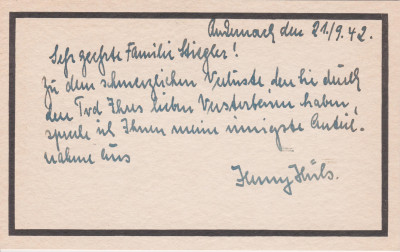 Andernach den 21./9.42.
Sehr geehrte Familie Stiegler!
Zu dem schmerzlichen Verluste, den Sie durch
den Tod Ihres lieben Verstorbenen haben,
spreche ich Ihnen meine innigste Anteil-
nahme aus
Jenny Hüls.